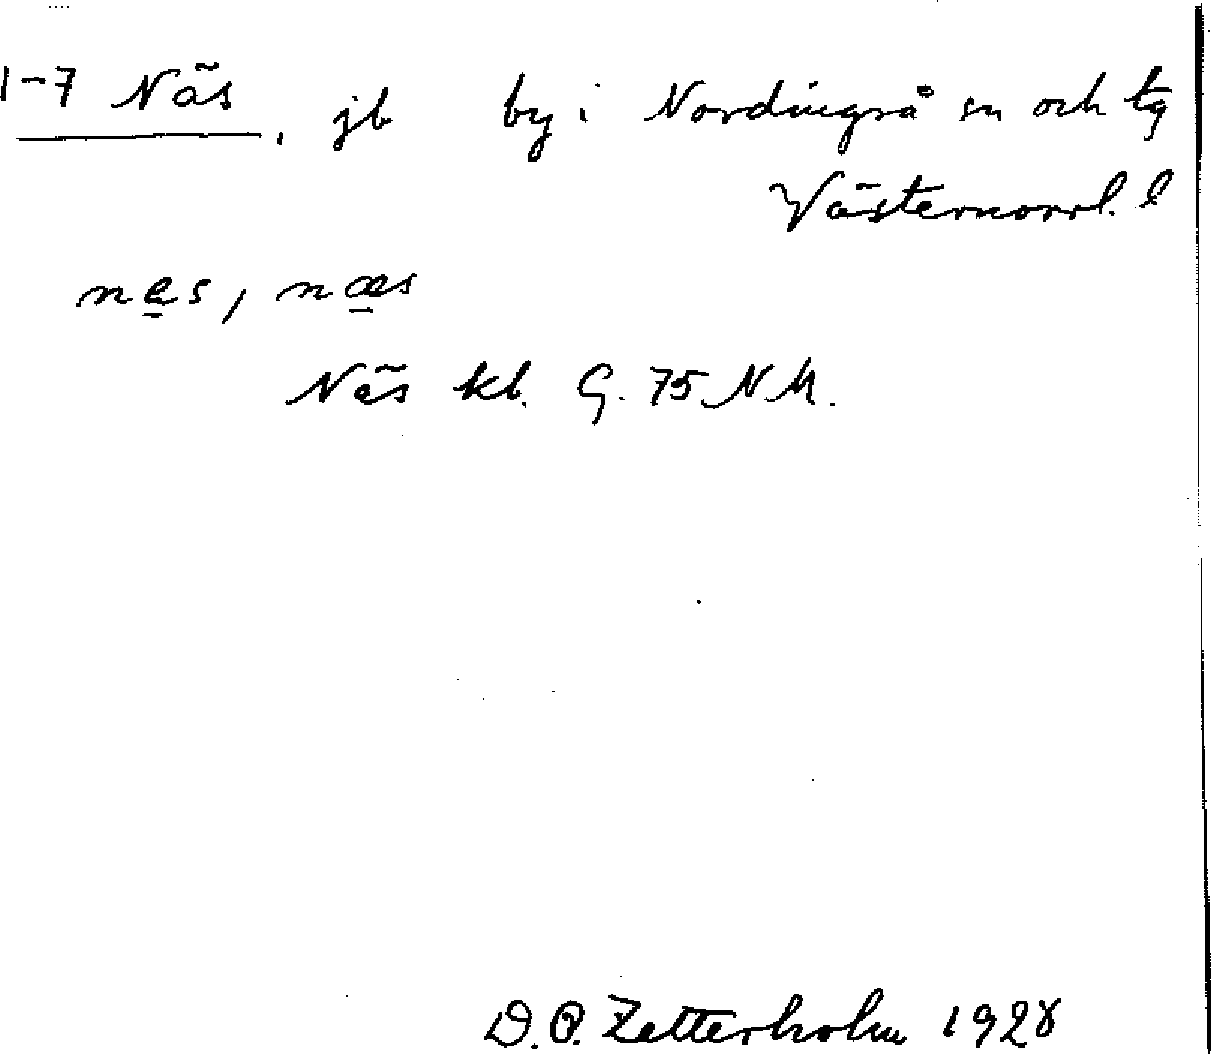 1-7 Näs, jb by i Nordingrå sn och tg
Västernorrl. l
nes, næs
Näs kb. G. 75 NM.
D.O. Zetterholm 1928